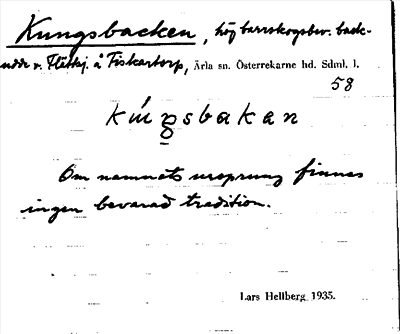 Kungsbacken, hög barrskogsbev. back-
udde v. Flätkj. å Fiskartorp, Ärla sn. Österrekarne hd. Sdml. l.
58
kúngsbakan
Om namnets ursprung finnes
ingen bevarad tradition.
Lars Hellberg 1935.